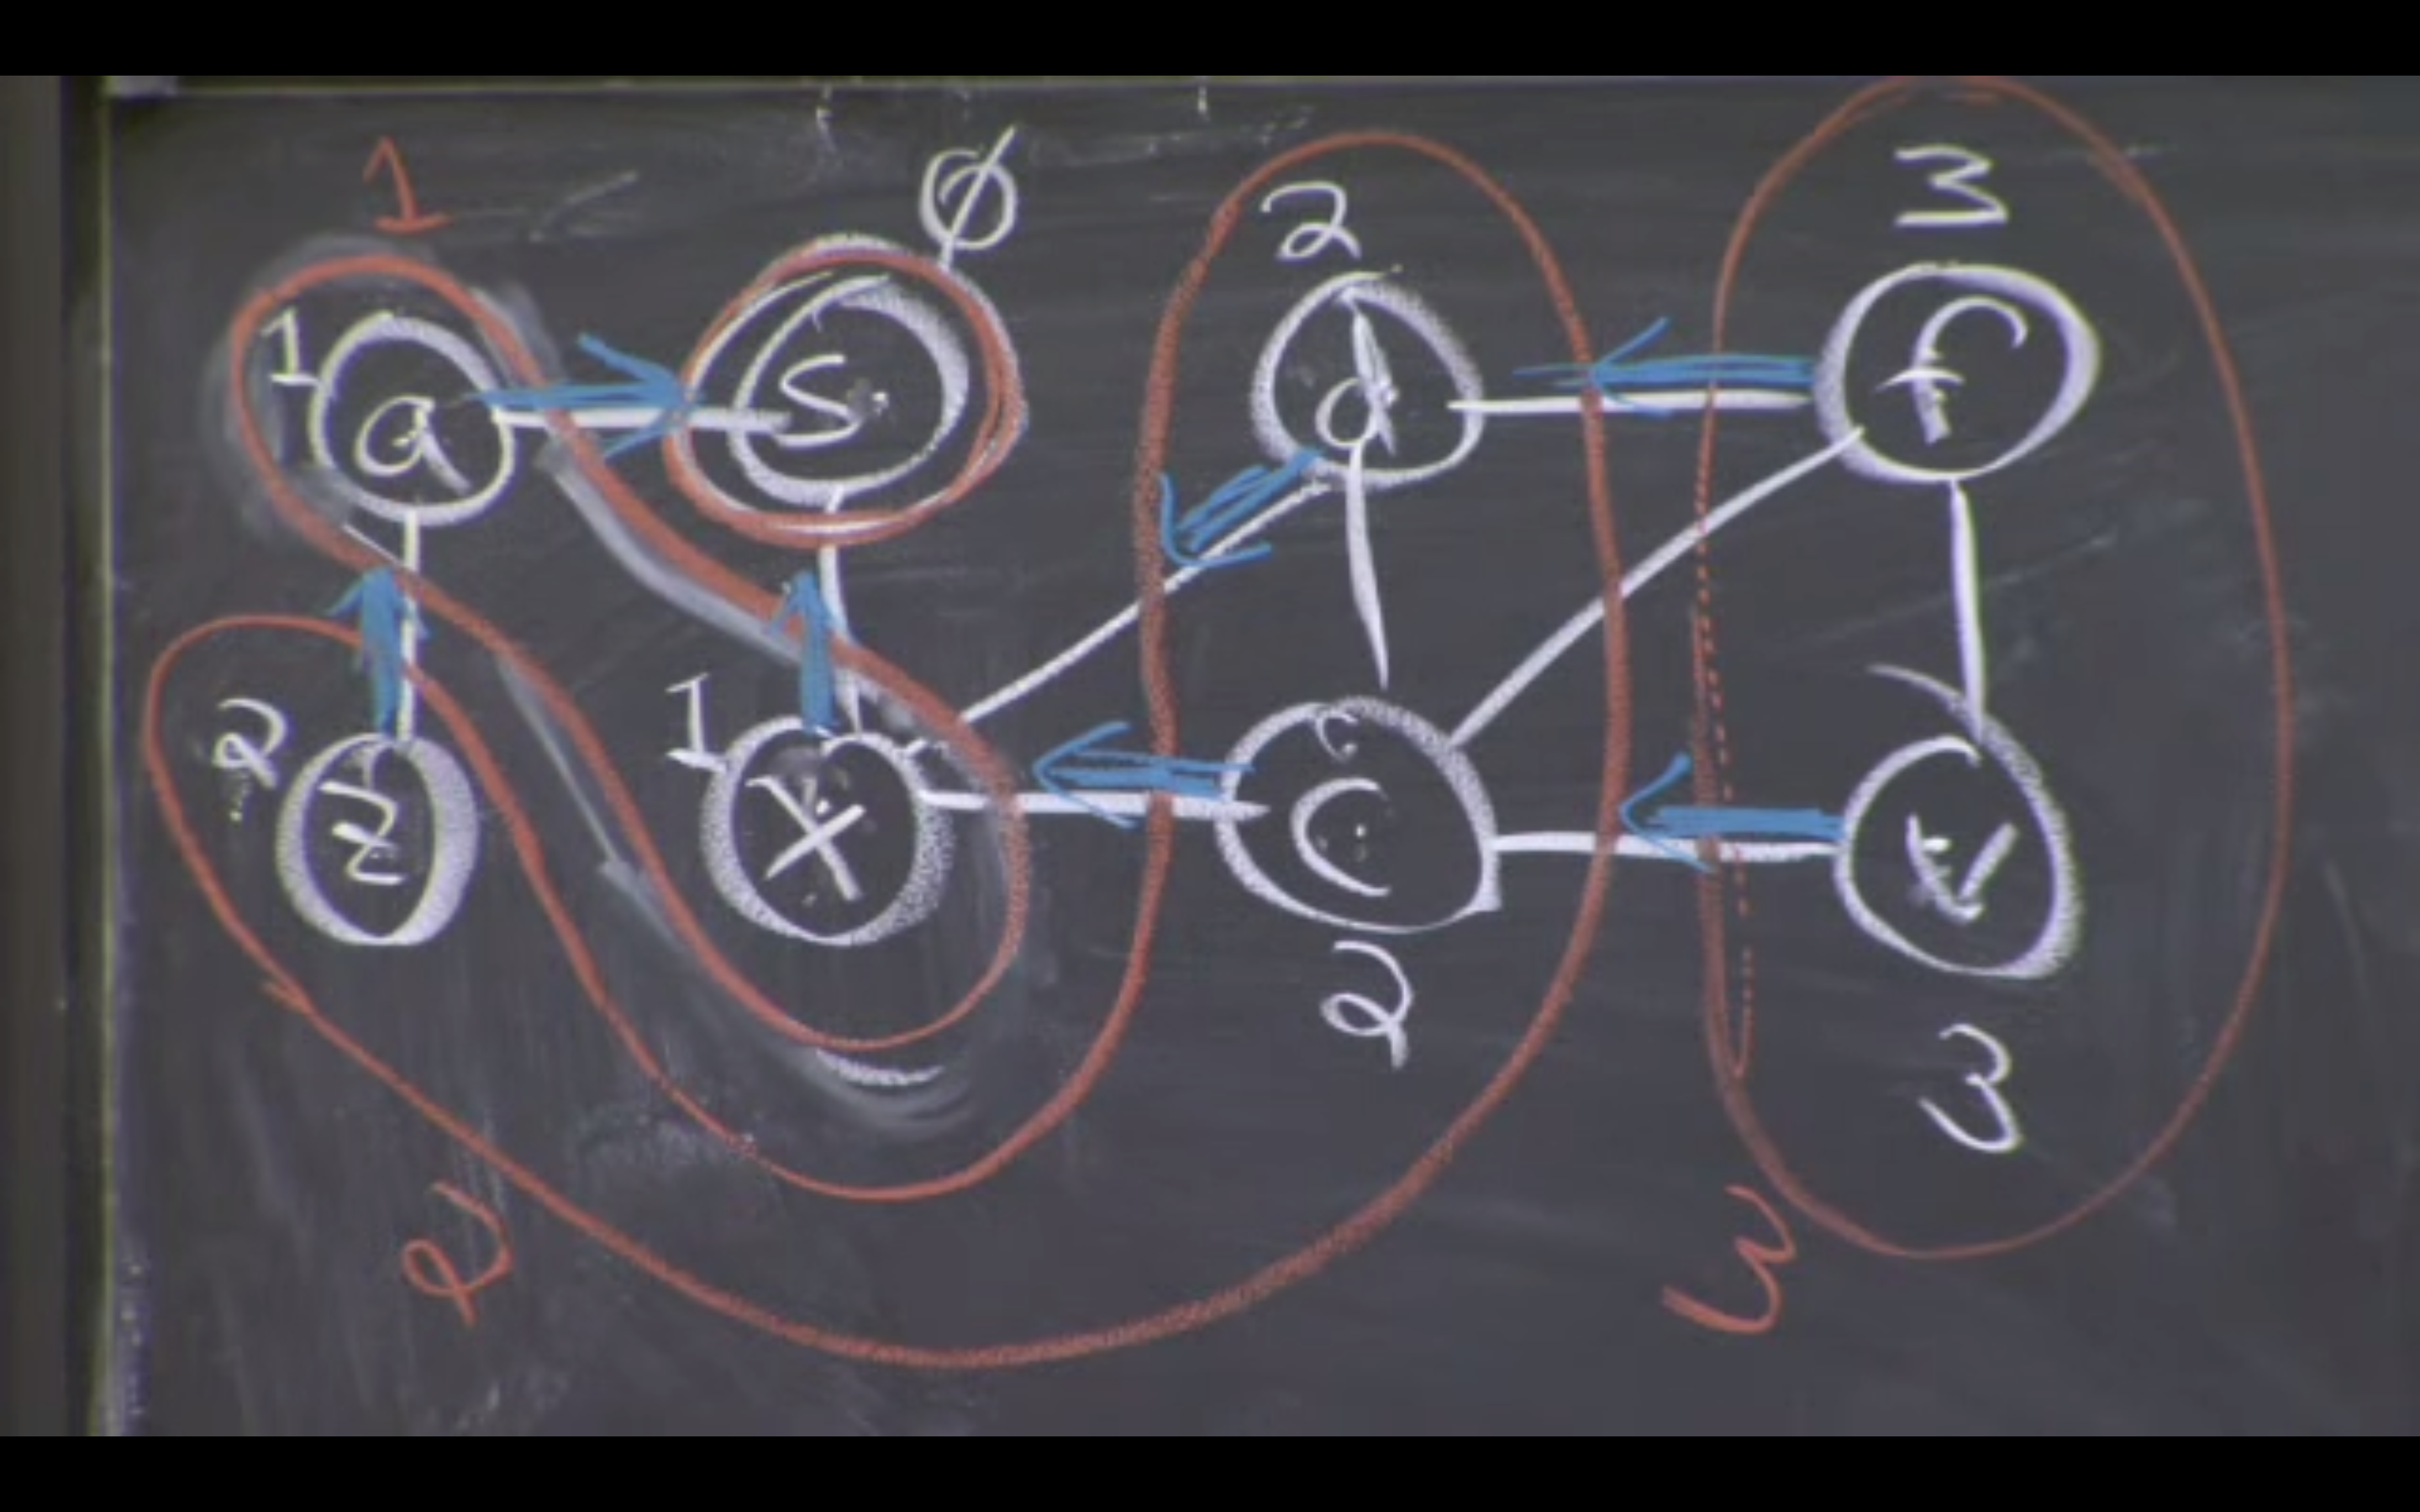 1
Ø
2
3
1
a
s
d
f
2
z
1
x
c
v
2
3
2
3